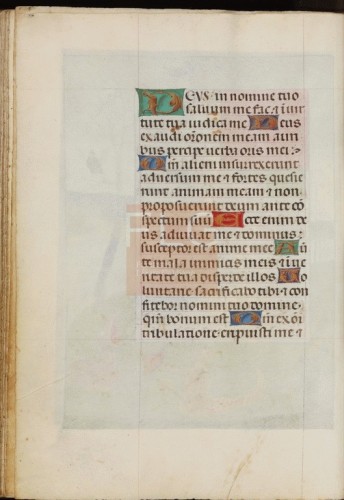 DEUS in nomine tuo
saluum me fac & in uir
tute tua iudica me Deus
exaudi orōnem meam auri
bus percipe uerba oris mei :
Qm̄ alieni insurrexerunt
aduersum me & fortes quesie
runt animam meam & non
proposuerunt deum ante cō
spectum suū Ecce enim de
us adiuuat me & dominus
susceptor est anime mee Auer
te mala inimicis meis & i ue
ritate tua disperde illos Uo
luntarie sacrificabo tibi & con
fitebor nomini tuo domine
qm̄ bonum est Qm̄ ex oi
tribulatione eripuisti me &